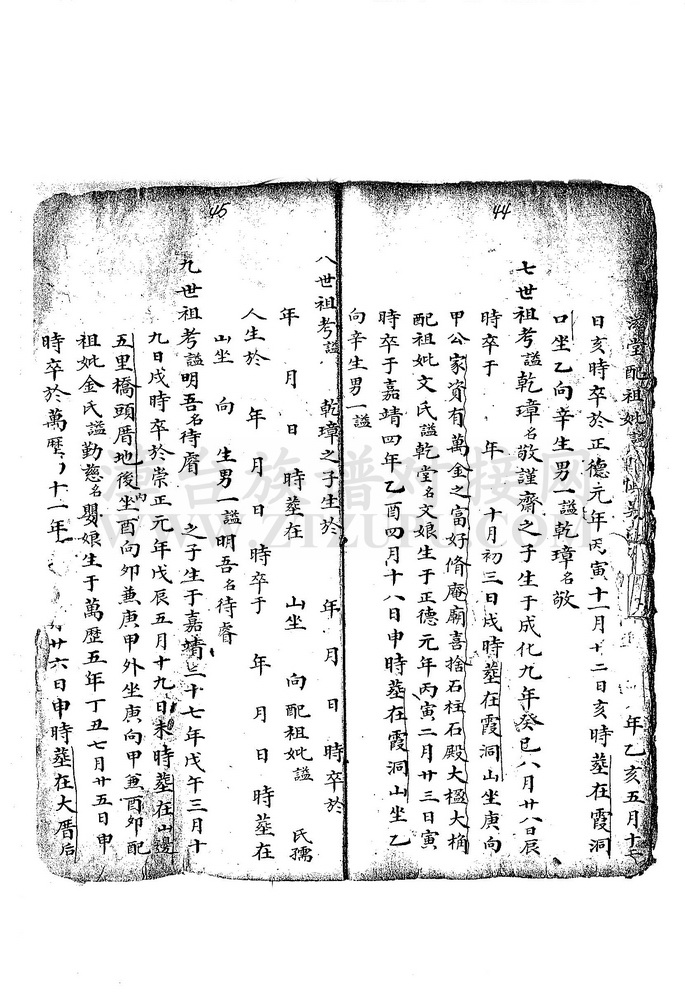 44
堂配祖妣謚 年乙亥五月十二
日亥時卒於正德元年丙寅十一月十二日亥時墓在霞洞
口坐乙向辛生男一謚乾璋名敬
七世祖考謚乾璋名敬謹齋之子生于成化九年癸巳八月廿八日辰
時卒于 年 十月初三日戌時墓在霞洞山坐庚向
甲公家資有萬金之富好脩庵廟喜捨石柱石殿大楹大桷
配祖妣文氏謚乾堂名文娘生于正德元年丙寅二月廿三日寅
時卒于嘉靖四年乙酉四月十八日申時墓在霞洞山坐乙
向辛生男一謚
45
八世祖考謚 乾璋之子生於 年 月 日 時卒於
年 月 日 時墓在 山坐 向配祖妣謚 氏孺
人生於 年 月 日 時卒于 年 月 日 時墓在
山坐 向 生男一謚明吾名待睿
九世祖考謚明吾名待睿 之子生于嘉靖三十七年戊午三月十
九日戌時卒於崇正元年戊辰五月十九日未時墓在山邊
五里橋頭厝地後內坐酉向卯兼庚甲外坐庚向甲兼酉卯配
祖妣金氏謚勤慈名嬰娘生于萬歷五年丁丑七月廿五日申
時卒於萬歷 十一年 廿六日申時墓在大厝后
滸台族谱对接网
WWW.ZTZUPU.COM